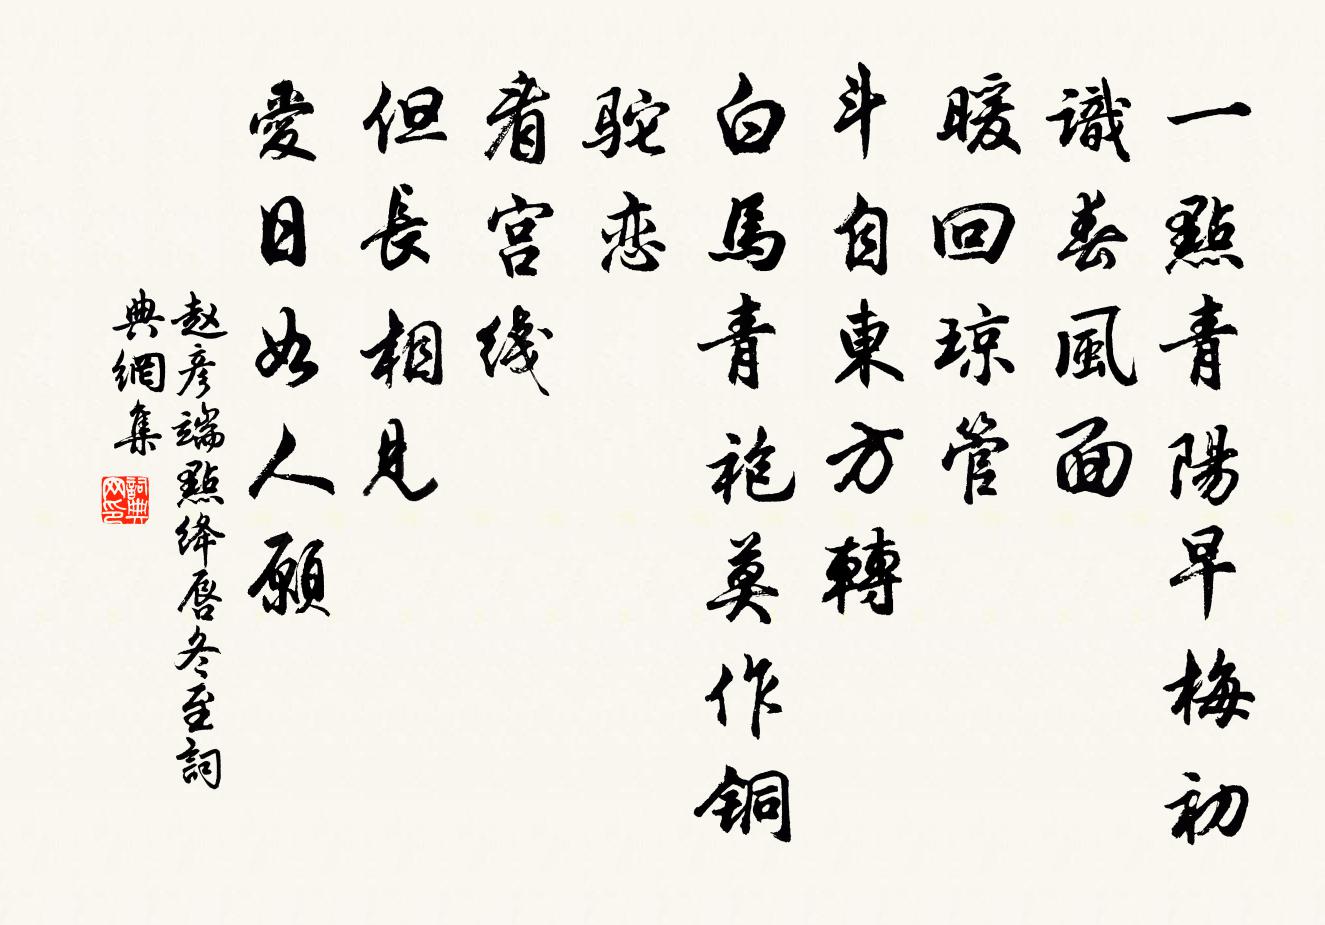 一點青陽早梅初
識春風面
暖回琼管
斗自東方轉
白馬青袍莫作铜
駝恋
看宫线
但長相見
愛日如人願
赵彦端點绛唇冬至詞
典網集
詞典网印